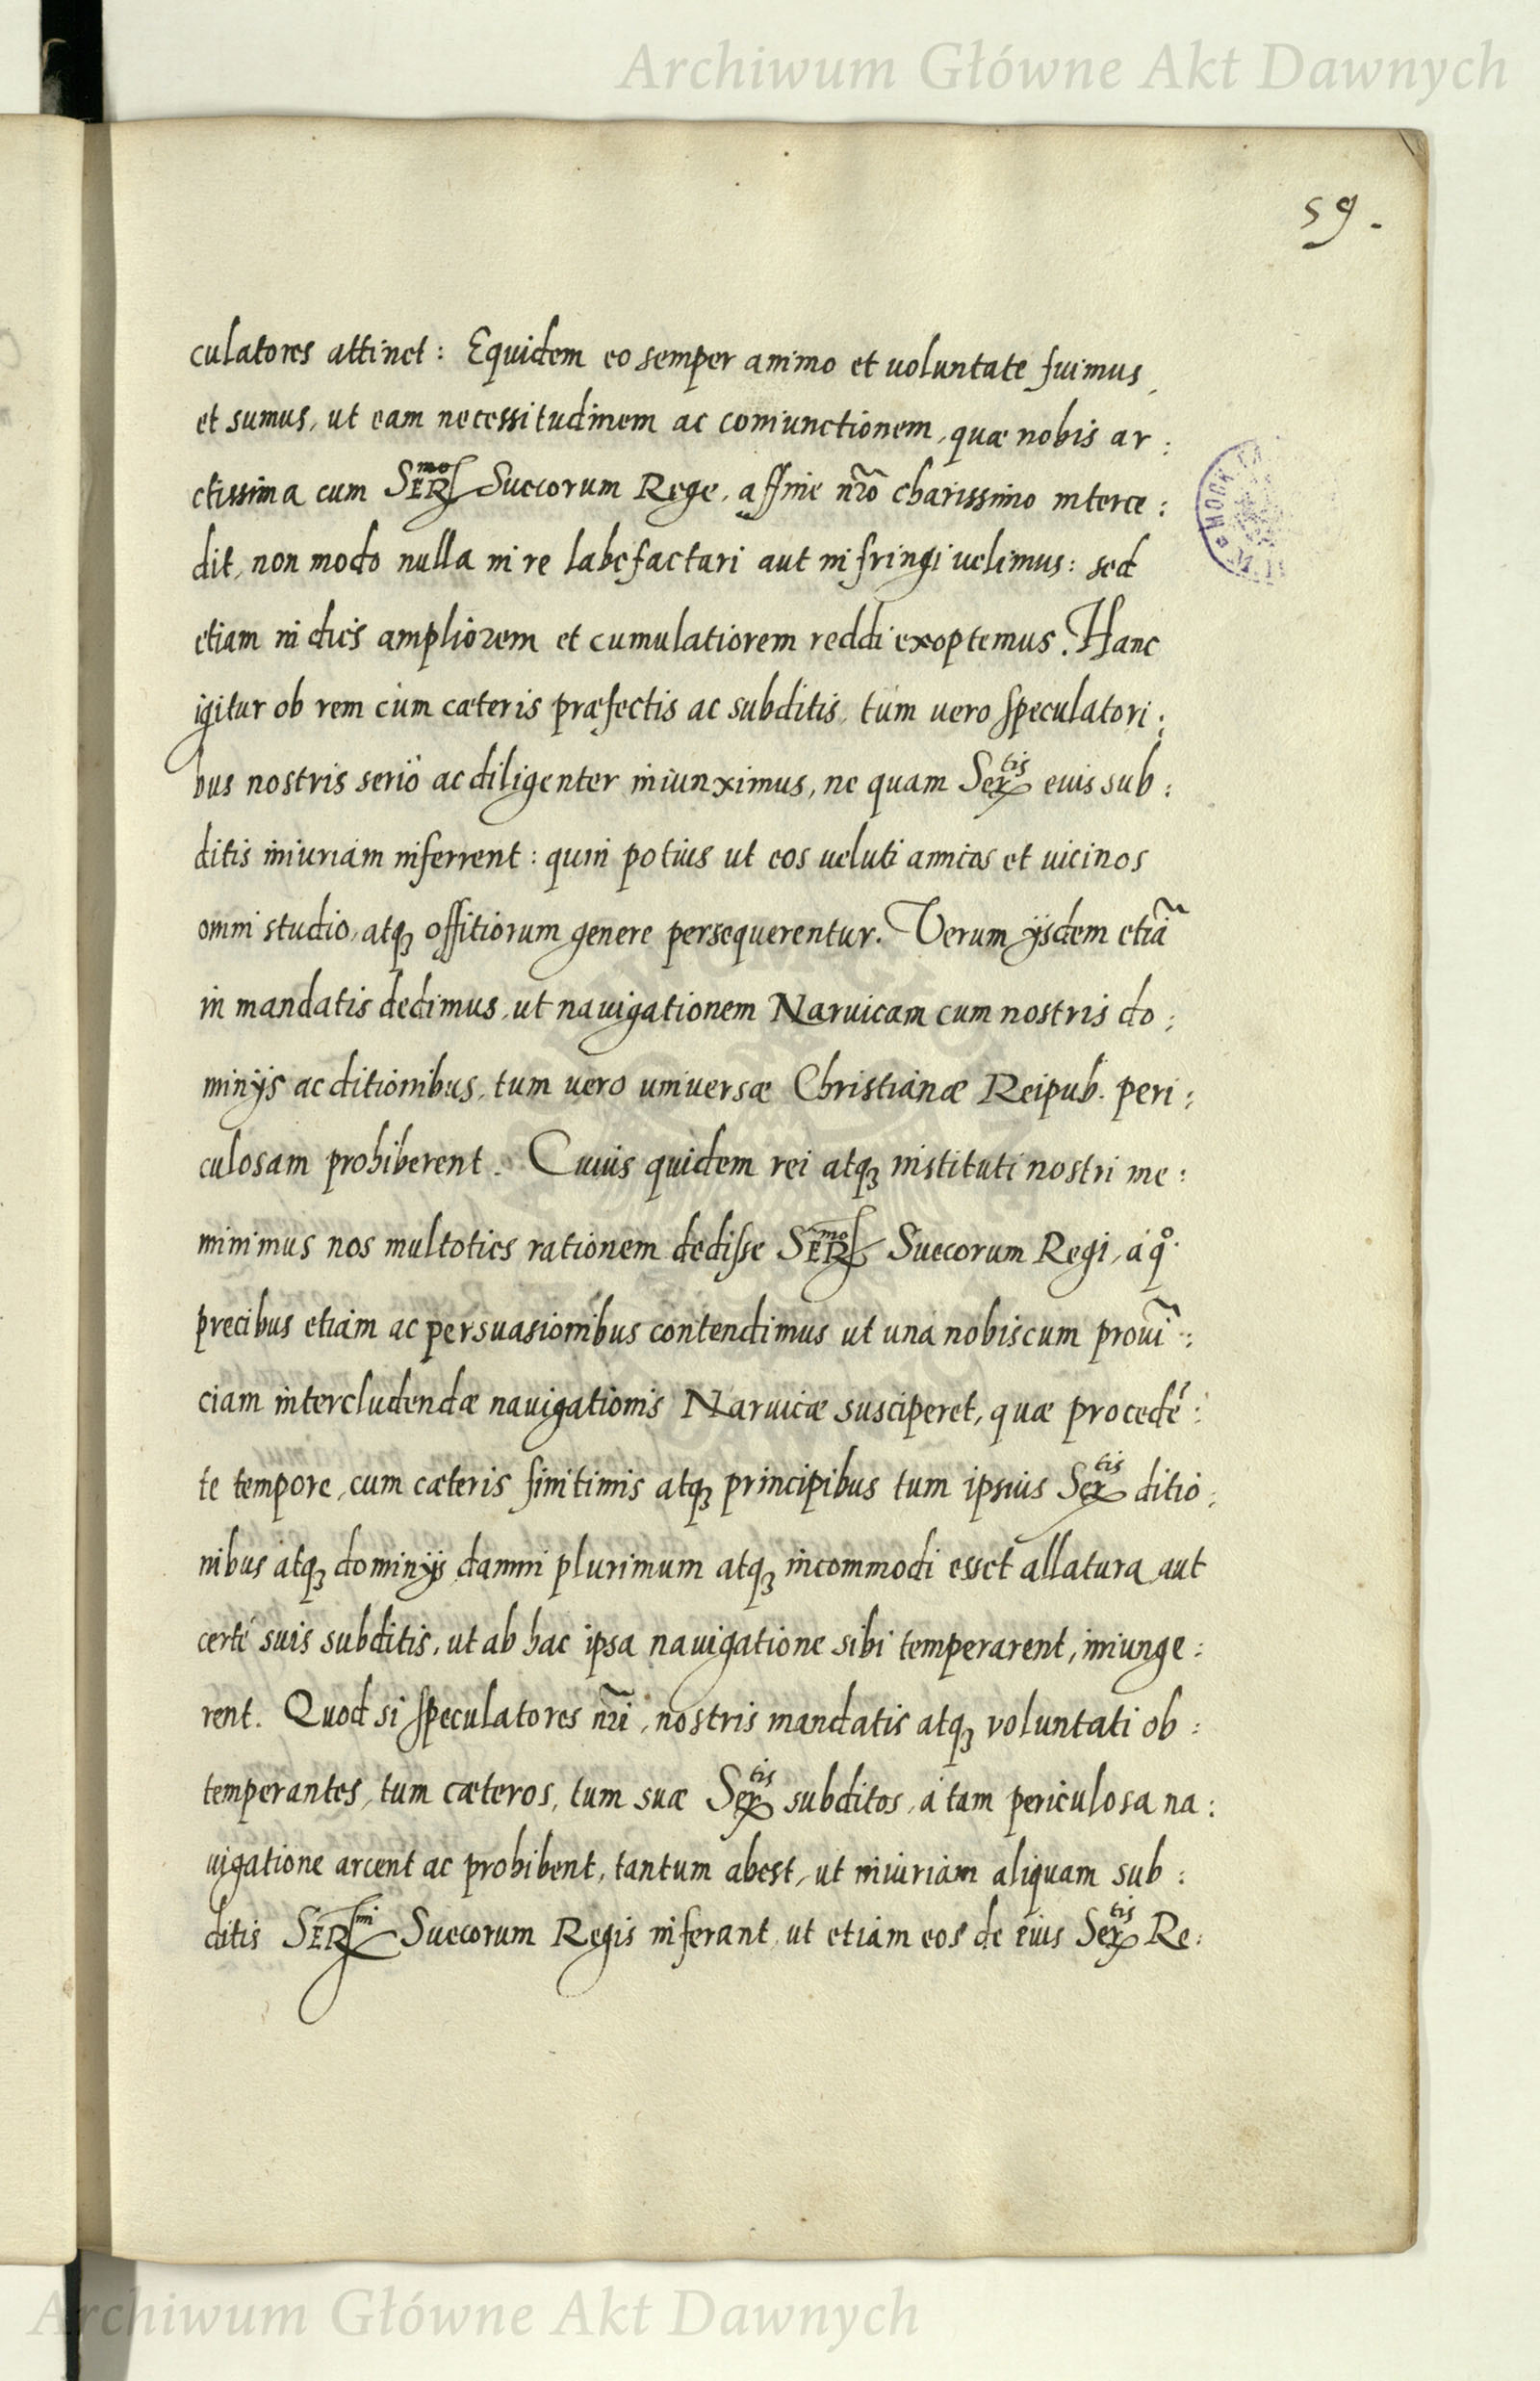 Archiwum Główne Akt Dawnych
59.
culatores attinet: Equidem eo semper animo et uoluntate fuimus,
et sumus, ut eam necessitudinem ac coniunctionem, quæ nobis ar:
ctissima cum SER^mo Suecorum Rege, affine nr̃o charissimo interce:
dit, non modo nulla in re labefactari aut infringi uelimus: sed
etiam in dies ampliorem et cumulatiorem reddi exoptemus. Hanc
igitur ob rem cùm cæteris præfectis ac subditis, tùm uero speculatori:
bus nostris seriò ac diligenter iniunximus, ne quam Ser^tis eius sub:
ditis iniuriam inferrent: quin potius ut eos ueluti amicos et uicinos
omni studio, atq₃ offitiorum genere persequerentur. Verum ijsdem etiã
in mandatis dedimus, ut nauigationem Naruicam cum nostris do:
minijs ac ditionibus, tum uero uniuersæ Christianæ Reipub. peri:
culosam prohiberent. Cuius quidem rei atq₃ instituti nostri me:
minimus nos multoties rationem dedisse SER^mo Suecorum Regi, à q̊
precibus etiam ac persuasionibus contendimus ut unà nobiscum prouĩ:
ciam intercludendæ nauigationis Naruicæ susciperet, quæ procedẽ:
te tempore, cum cæteris finitimis atq₃ principibus tum ipsius Ser^tis ditio:
nibus atq₃ dominijs damni plurimum atq₃ incommodi esset allatura, aut
certè suis subditis, ut ab hac ipsa nauigatione sibi temperarent, iniunge:
rent. Quod si speculatores nr̃i, nostris mandatis atq₃ voluntati ob:
temperantes, tum cæteros, tum suæ Ser^tis subditos, à tam periculosa na:
uigatione arcent ac prohibent, tantum abest, ut iniuriam aliquam sub:
ditis SER^mi Suecorum Regis inferant, ut etiam eos de eius Ser^tis Re:
Archiwum Główne Akt Dawnych